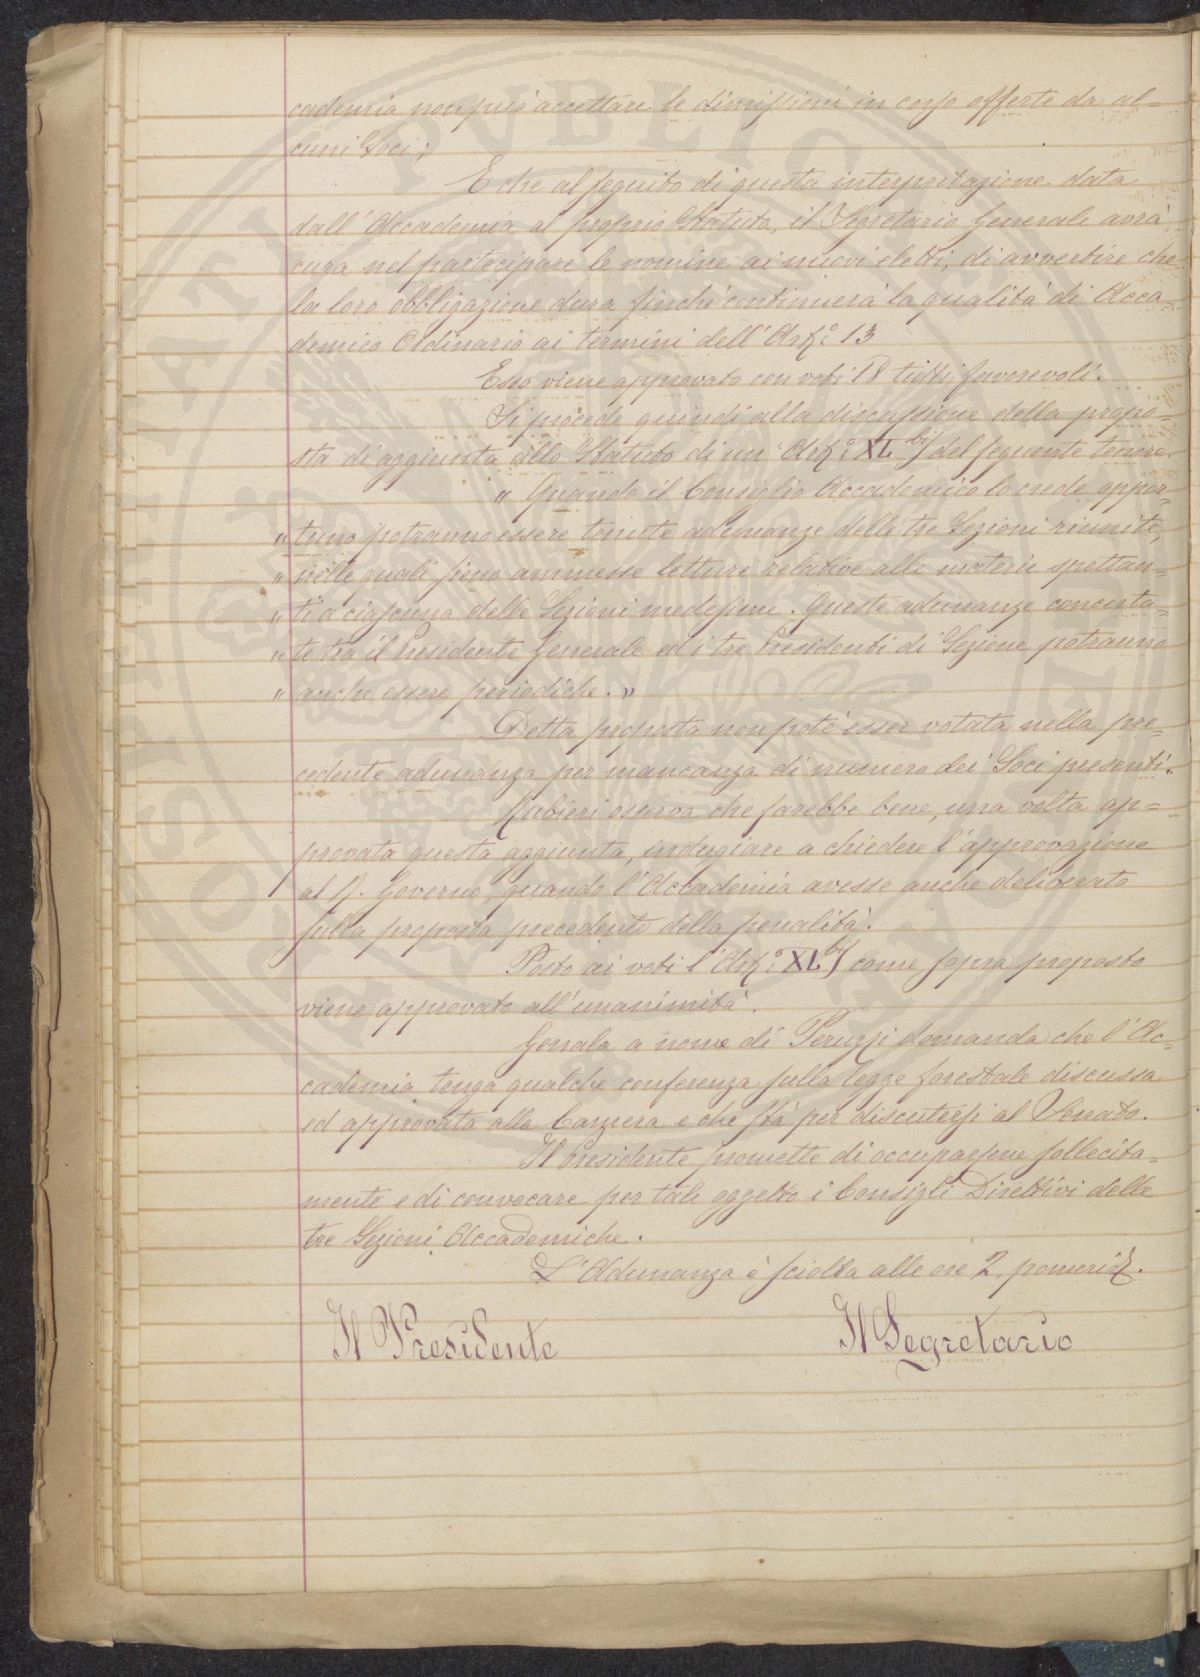 cademia non può accettare le dimissioni in corso offerte da al=
cuni Soci;
E che al seguito di questa interpretazione data
dall'Accademia al proprio Statuto, il Segretario Generale avrà
cura nel partecipare le nomine ai nuovi eletti, di avvertire che
la loro obbligazione dura finchè continuerà la qualità di Acca=
demico Ordinario ai termini dell'Art.° 13
Esso viene approvato con voti 18 tutti favorevoli.
Si procede quindi alla discussione della propo=
sta di aggiunta allo Statuto di un Art.° XL bis del seguente tenore.
" Quando il Consiglio Accademico lo crede oppor=
" tuno potranno essere tenute adunanze delle tre Sezioni riunite,
" nelle quali sieno ammesse letture relative alle materie spettan=
" ti a ciascuna delle Sezioni medesime. Queste adunanze concerta=
" te tra il Presidente Generale ed i tre Presidenti di Sezione potranno
" anche essere periodiche. "
Detta proposta non potè esser votata nella pre=
cedente adunanza per mancanza di numero dei Soci presenti.
Rubieri osserva che sarebbe bene, una volta ap=
provata questa aggiunta, indugiare a chiedere l'approvazione
al R. Governo, quando l'Accademia avesse anche deliberato
sulla proposta precedente della penalità.
Posto ai voti l'Art.° XL bis come sopra proposto
viene approvato all'unanimità.
Genala a nome di Peruzzi domanda che l'Ac=
cademia tenga qualche conferenza sulla legge forestale discussa
ed approvata alla Camera e che stà per discutersi al Senato.
Il Presidente promette di occuparsene sollecita=
mente e di convocare per tale oggetto i Consigli Direttivi delle
tre Sezioni Accademiche.
L'Adunanza è sciolta alle ore 2 pomerid.
Il Presidente Il Segretario